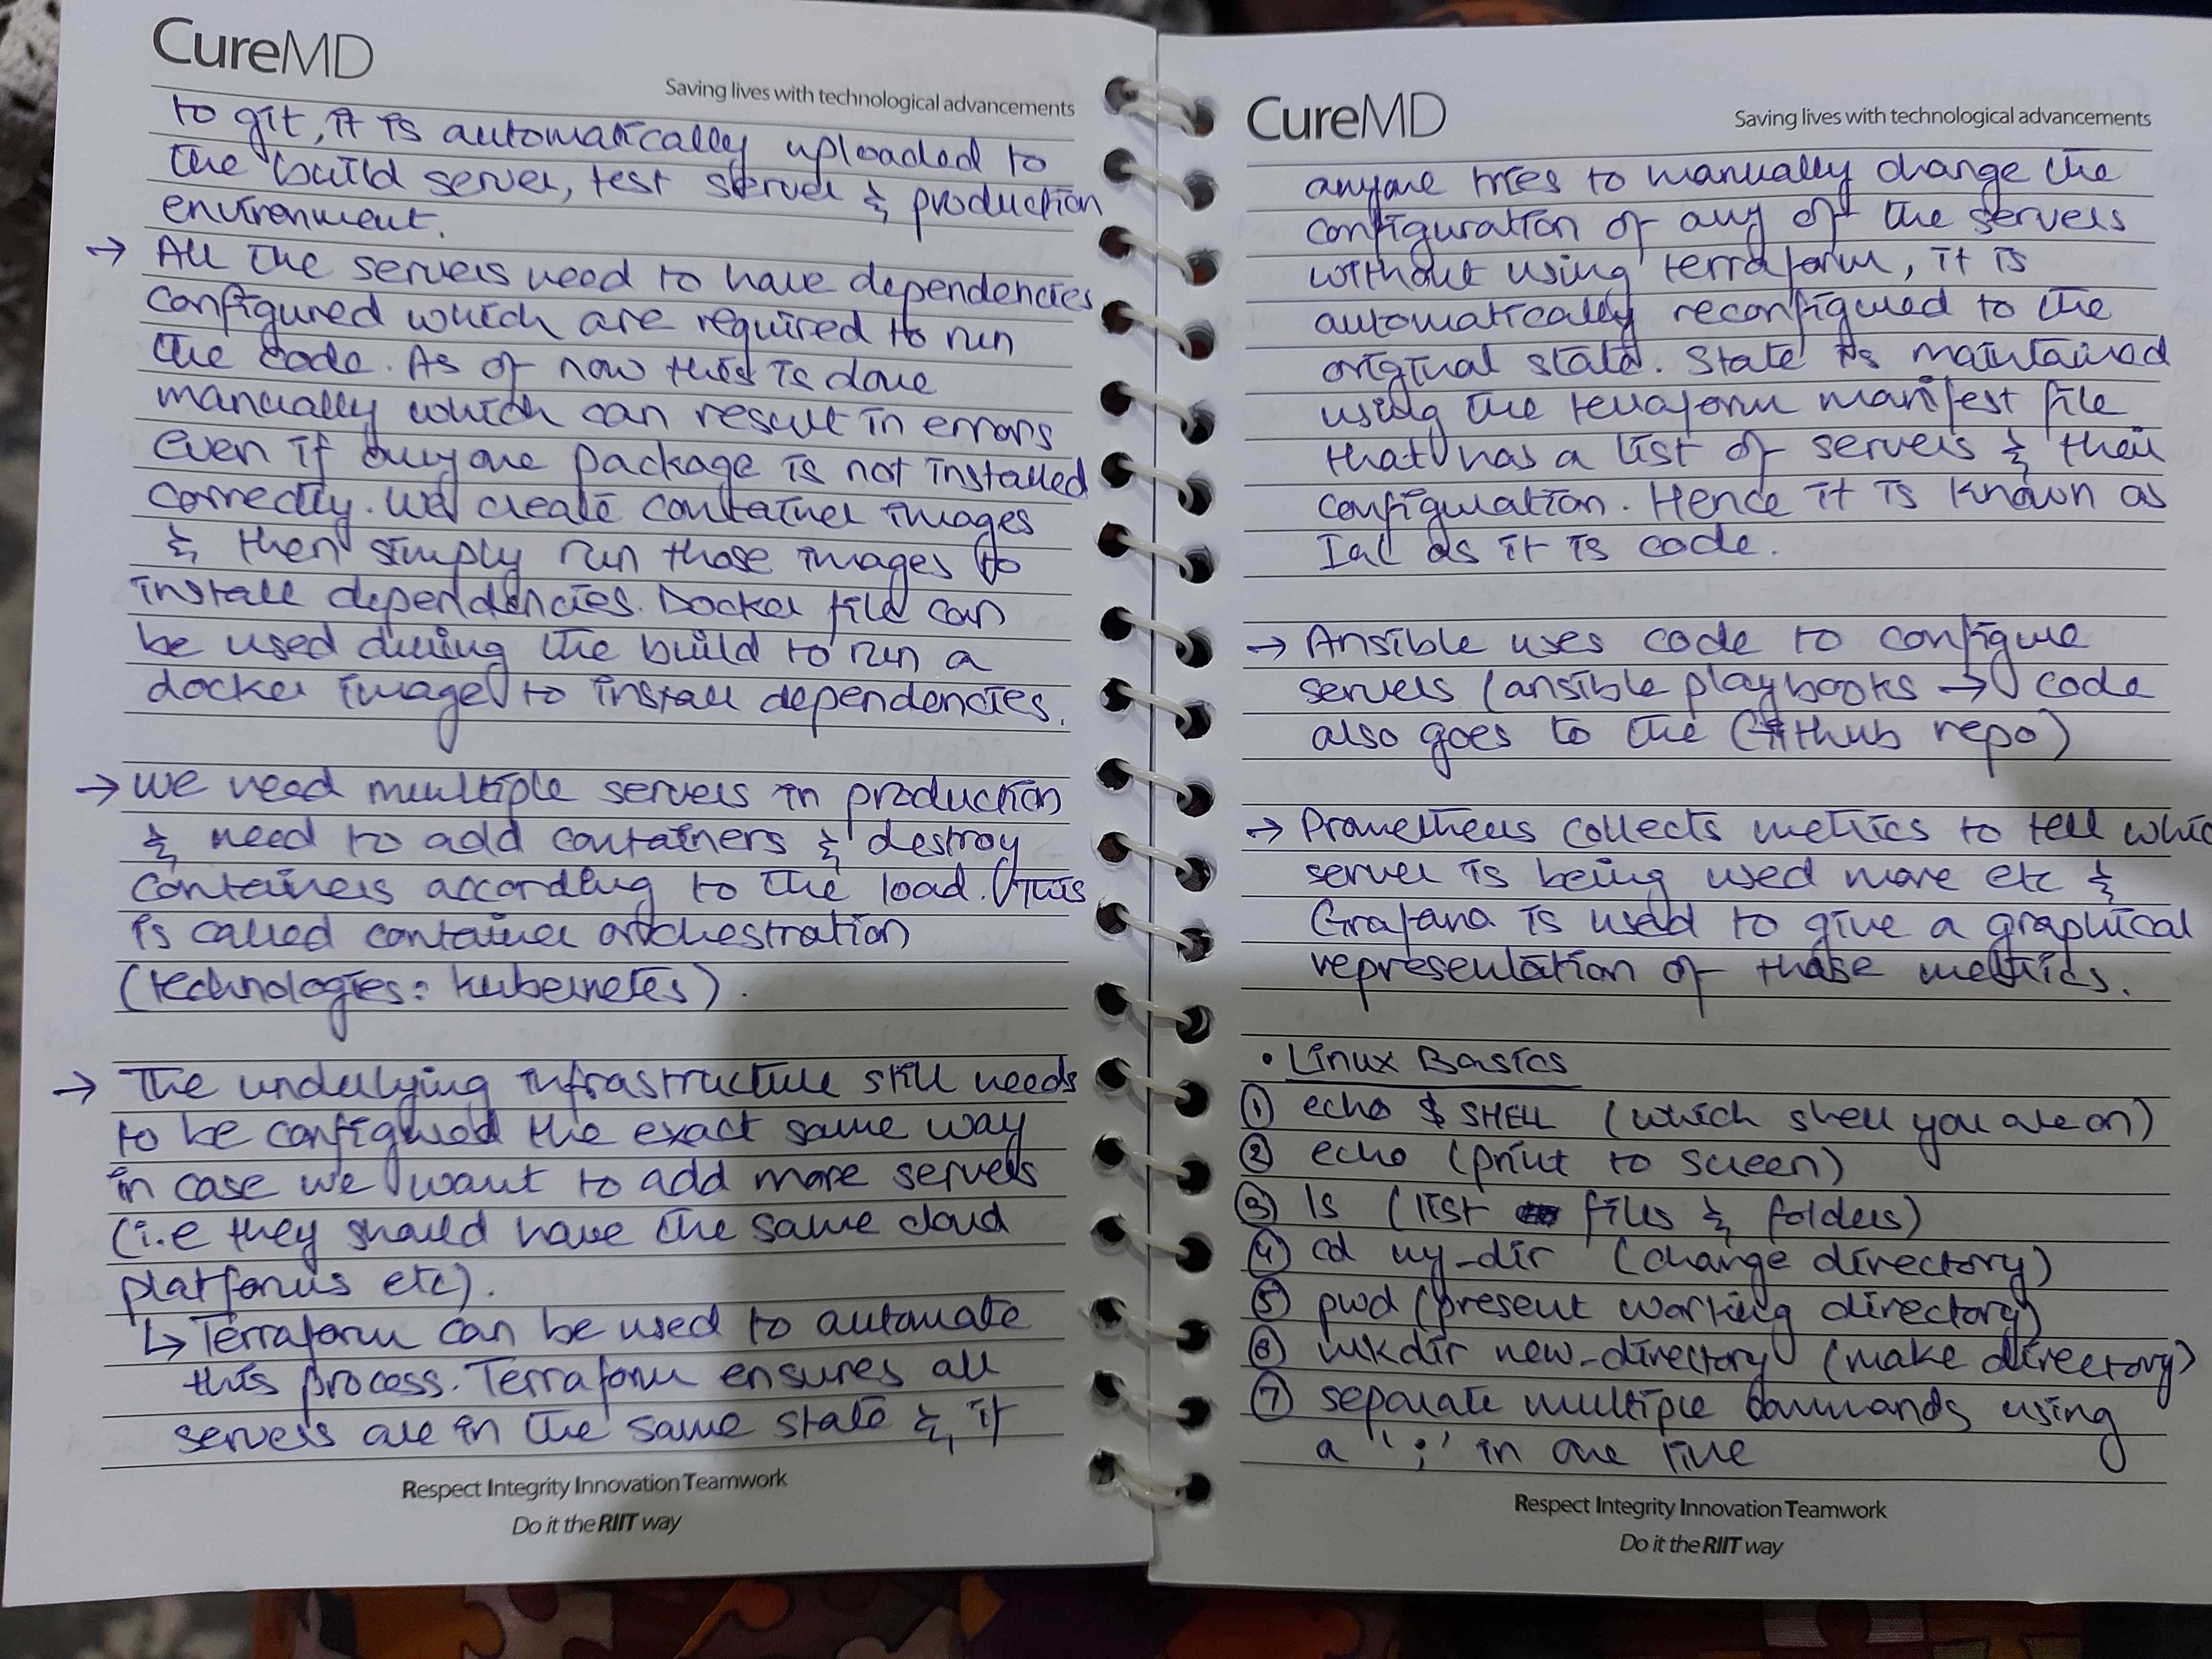 CureMD
Saving lives with technological advancements
to git, it is automatically uploaded to
the build server, test server & production
environment.
→ All the servers need to have dependencies
configured which are required to run
the code. As of now this is done
manually which can result in errors
even if any one package is not installed
correctly. We create container images
& then simply run those images to
install dependencies. Docker file can
be used during the build to run a
docker image to install dependencies.
→ We need multiple servers in production
& need to add containers & destroy
containers according to the load. This
is called container orchestration
(technologies: kubernetes).
→ The underlying infrastructure still needs
to be configured the exact same way
in case we want to add more servers
(i.e they should have the same cloud
platforms etc).
↳ Terraform can be used to automate
this process. Terraform ensures all
servers are in the same state & if
Respect Integrity Innovation Teamwork
Do it the RIIT way
CureMD
Saving lives with technological advancements
anyone tries to manually change the
configuration of any of the servers
without using terraform, it is
automatically reconfigured to the
original state. State is maintained
using the terraform manifest file
that has a list of servers & their
configuration. Hence it is known as
IaC as it is code.
→ Ansible uses code to configure
servers (ansible playbooks → code
also goes to the Github repo)
→ Prometheus collects metrics to tell whic
server is being used more etc &
Grafana is used to give a graphical
representation of those metrics.
• Linux Basics
① echo $SHELL (which shell you are on)
② echo (print to screen)
③ ls (list files & folders)
④ cd my_dir (change directory)
⑤ pwd (present working directory)
⑥ mkdir new_directory (make directory)
⑦ separate multiple commands using
a ';' in one line
Respect Integrity Innovation Teamwork
Do it the RIIT way